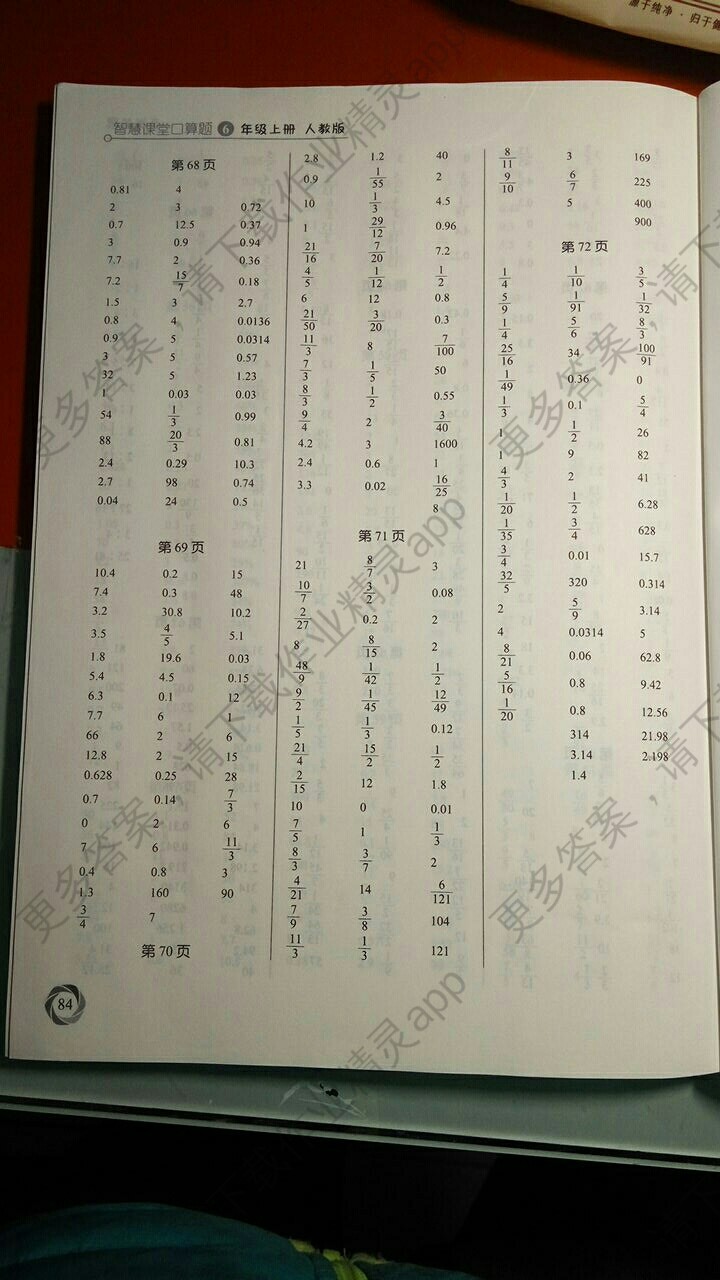 源于纯净·归于
智慧课堂口算题 6 年级上册 人教版
第68页
0.81 4
2 3 0.72
0.7 12.5 0.37
3 0.9 0.94
7.7 2 0.36
7.2 15/7 0.18
1.5 3 2.7
0.8 4 0.0136
0.9 5 0.0314
3 5 0.57
32 5 1.23
1 0.03 0.03
54 1/3 0.99
88 20/3 0.81
2.4 0.29 10.3
2.7 98 0.74
0.04 24 0.5
第69页
10.4 0.2 15
7.4 0.3 48
3.2 30.8 10.2
3.5 4/5 5.1
1.8 19.6 0.03
5.4 4.5 0.15
6.3 0.1 12
7.7 6 1
66 2 6
12.8 2 15
0.628 0.25 28
0.7 0.14 7/3
0 2 6
7 6 11/3
0.4 0.8 3
1.3 160 90
3/4 7
第70页
2.8 1.2 40
0.9 1/55 2
10 1/3 4.5
1 29/12 0.96
21/16 7/20 7.2
4/5 1/12 1/2
6 12 0.8
21/50 3/20 0.3
11/3 8 7/100
7/3 1/5 50
8/3 1/2 0.55
9/4 2 3/40
4.2 3 1600
2.4 0.6 1
3.3 0.02 16/25
8
第71页
21 8/7 3
10/7 3/2 0.08
2/27 0.2 2
8 8/15 2
48/9 1/42 1/2
9/2 1/45 12/49
1/5 1/3 0.12
21/4 15/2 1/2
2/15 12 1.8
10 0 0.01
7/5 1 1/3
8/3 3/7 2
4/21 14 6/121
7/9 3/8 104
11/3 1/3 121
8/11 3 169
9/10 6/7 225
5 400
900
第72页
1/4 1/10 3/5
5/9 1/91 1/32
1/4 5/6 8/3
25/16 34 100/91
1/49 0.36 0
1/3 0.1 5/4
1 1/2 26
1 9 82
4/3 2 41
1/20 1/2 6.28
1/35 3/4 628
3/4 0.01 15.7
32/5 320 0.314
2 5/9 3.14
4 0.0314 5
8/21 0.06 62.8
5/16 0.8 9.42
1/20 0.8 12.56
314 21.98
3.14 2.198
1.4
84
更多答案，请下载作业精灵app
更多答案，请下载作业精灵app
更多答案，请下载作业精灵app
更多答案，请下载作业精灵app